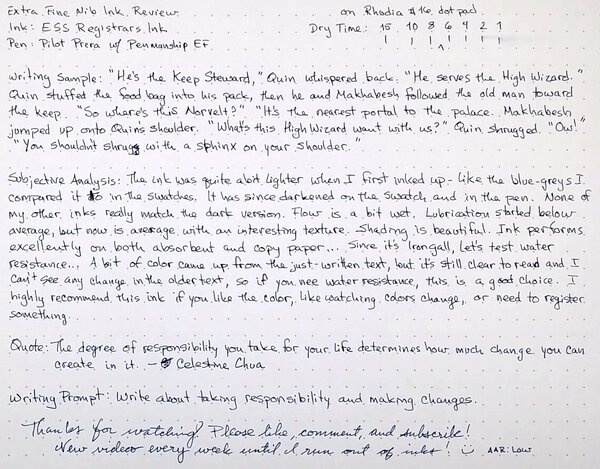 Extra Fine Nib Ink Review on Rhodia #16 dot pad
Ink: ESS Registrars Ink Dry Time: 15 10 8 6 4 2 1
Pen: Pilot Prera w/ Penmanship EF
Writing Sample: "He's the Keep Steward," Quin whispered back. "He serves the High Wizard."
Quin stuffed the food bag into his pack, then he and Makhabesh followed the old man toward
the keep. "So where's this Norvelt?" "It's the nearest portal to the palace. Makhabesh
jumped up onto Quin's shoulder. "What's this High Wizard want with us?" Quin shrugged. "Ow!"
"You shouldn't shrug with a sphinx on your shoulder."
Subjective Analysis: The ink was quite a bit lighter when I first inked up - like the blue-greys I
compared it to in the swatches. It has since darkened on the swatch and in the pen. None of
my other inks really match the dark version. Flow is a bit wet. Lubrication started below
average, but now is average with an interesting texture. Shading is beautiful. Ink performs
excellently on both absorbent and copy paper... Since it's Irongall, let's test water
resistance... A bit of color came up from the just-written text, but it's still clear to read and I
can't see any change in the older text, so if you nee water resistance, this is a good choice. I
highly recommend this ink if you like the color, like watching colors change, or need to register
something.
Quote: The degree of responsibility you take for your life determines how much change you can
create in it. - Celestine Chua
Writing Prompt: Write about taking responsibility and making changes.
Thanks for watching! Please like, comment, and subscribe!
New videos every week until I run out of inks! AAR: Low